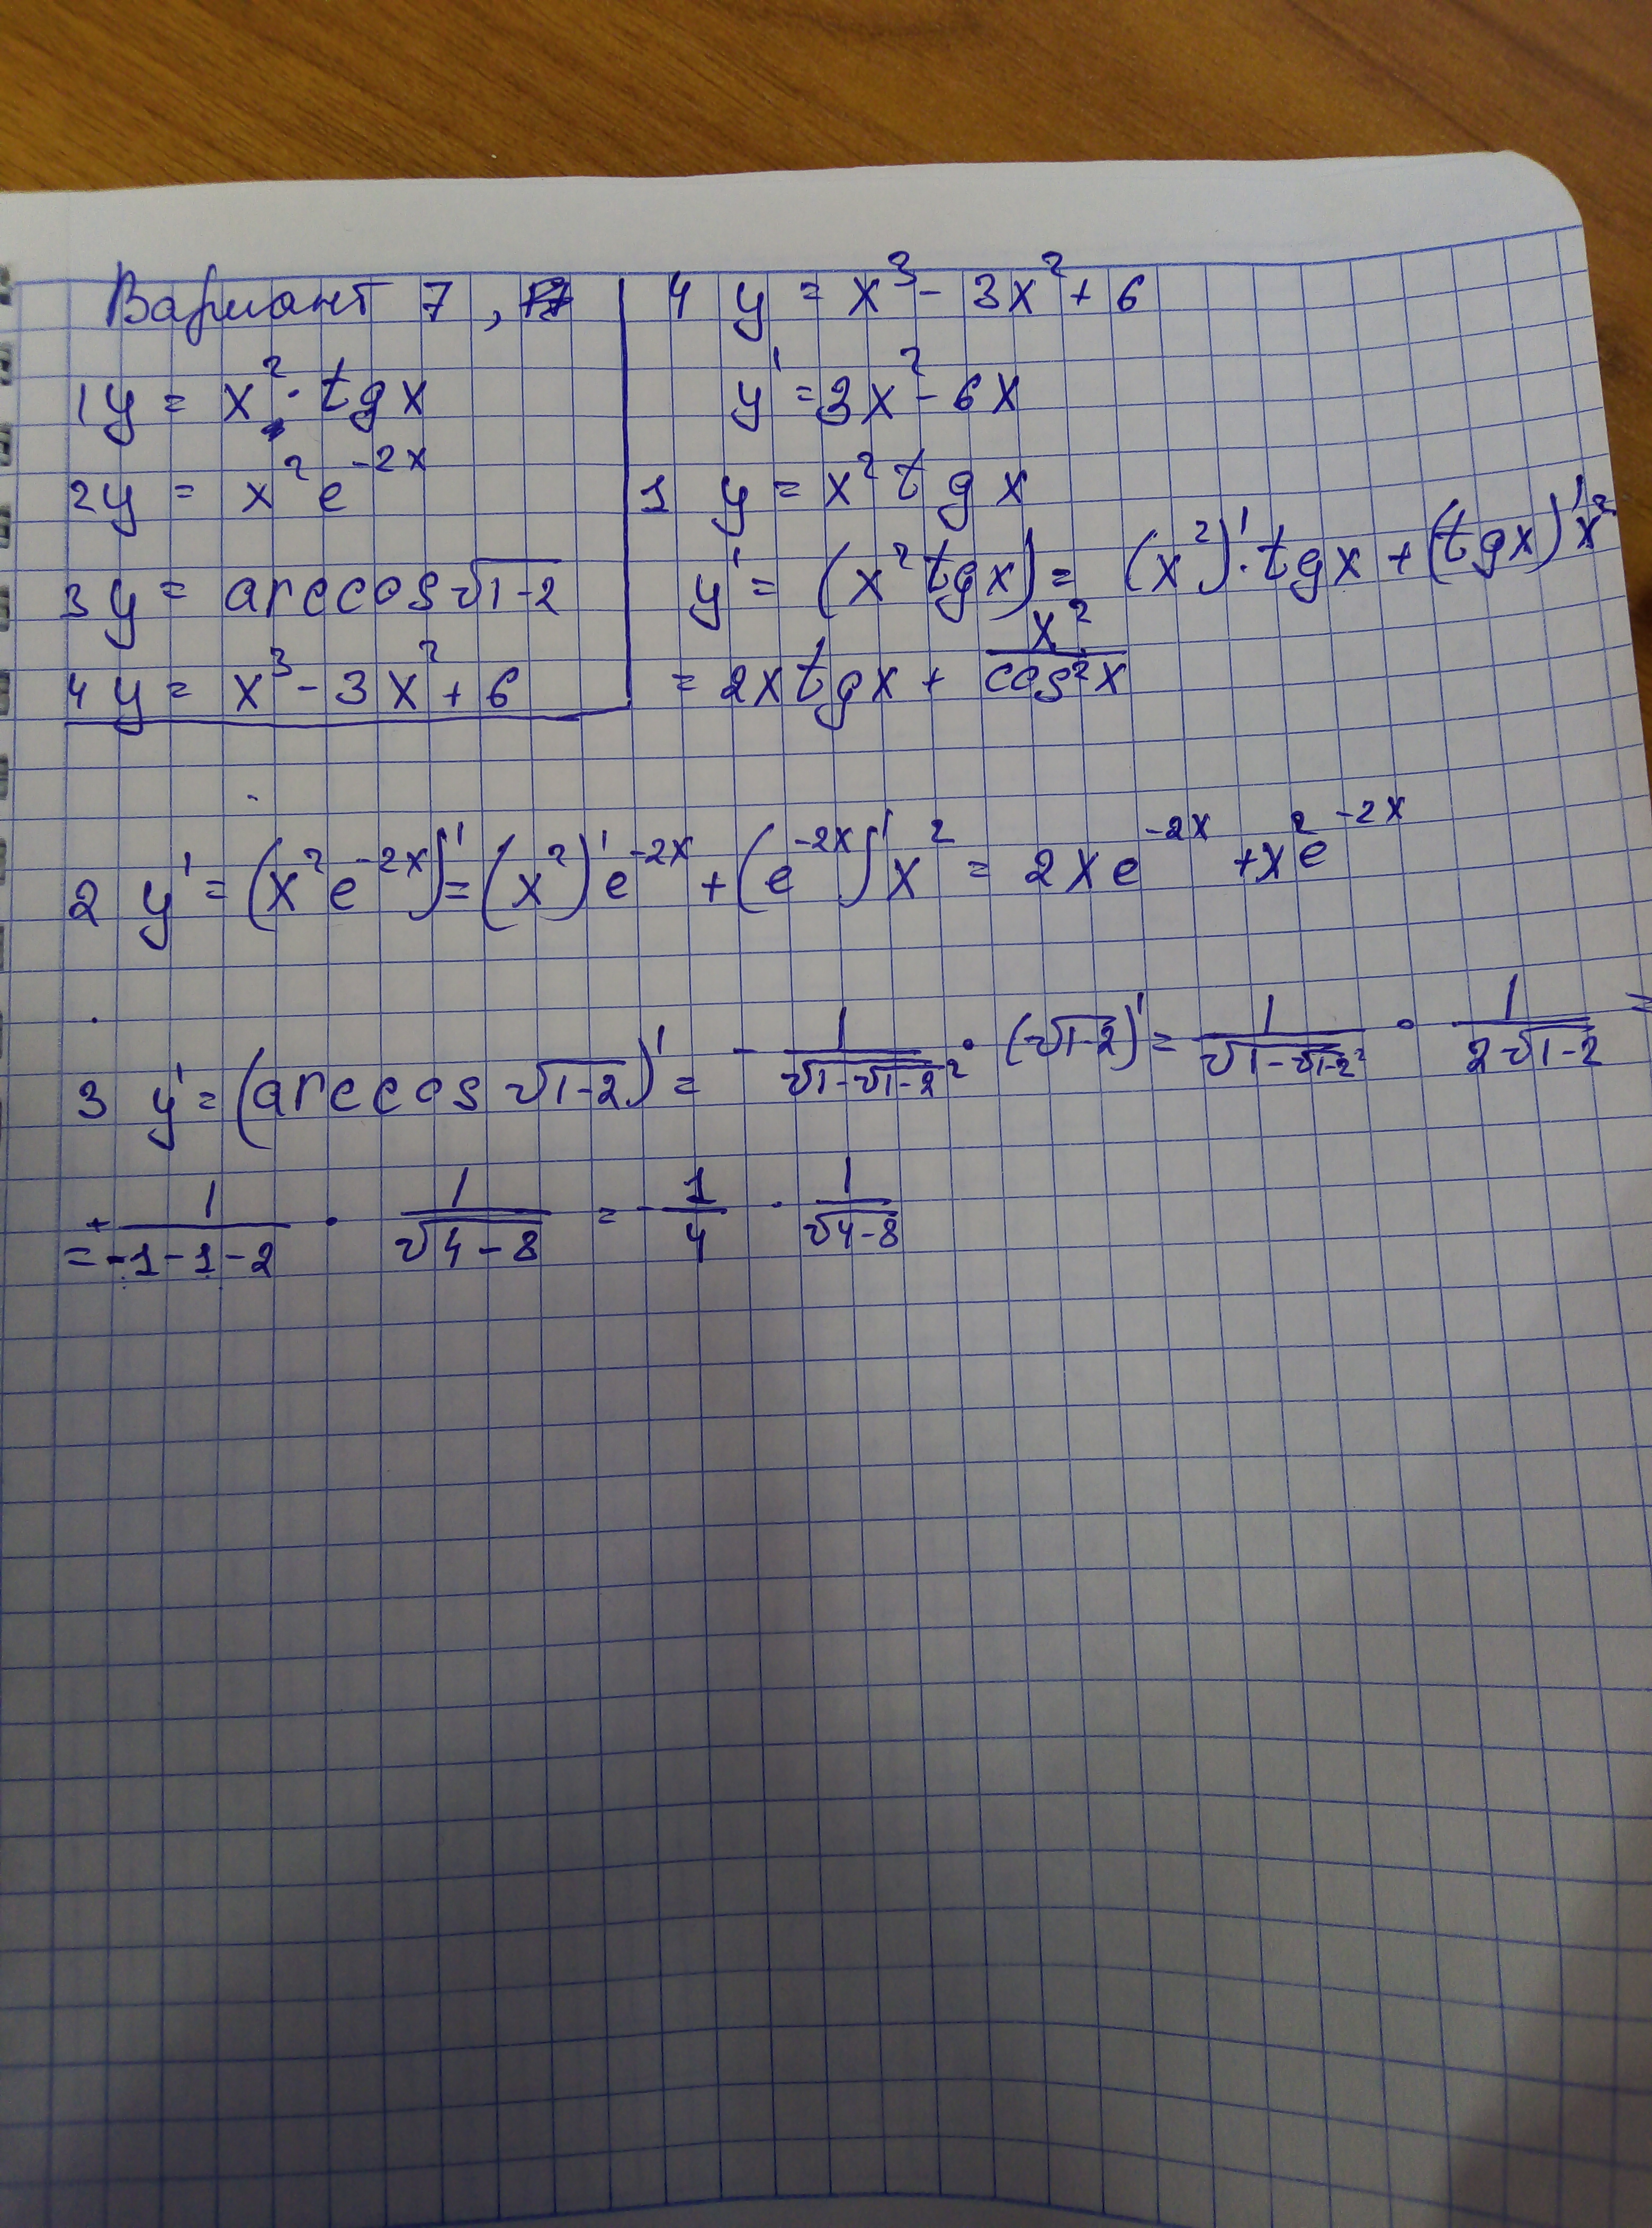 Вариант 7,
1 y = x² · tg x
2 y = x² e^-2x
3 y = arccos √1-2
4 y = x³ - 3x² + 6
4 y = x³ - 3x² + 6
y' = 3x² - 6x
1 y = x² tg x
y' = (x² tg x) = (x²)' · tg x + (tg x)' x²
= 2x tg x + x²/cos²x
2 y' = (x² e^-2x)' = (x²)' e^-2x + (e^-2x)' x² = 2xe^-2x + x² e^-2x
3 y' = (arccos √1-2)' = - 1/√1-√1-2² · (-√1-2)' = 1/√1-√1-2² · 1/2√1-2 =
= + 1/-1-1-2 · 1/√4-8 = - 1/4 · 1/√4-8